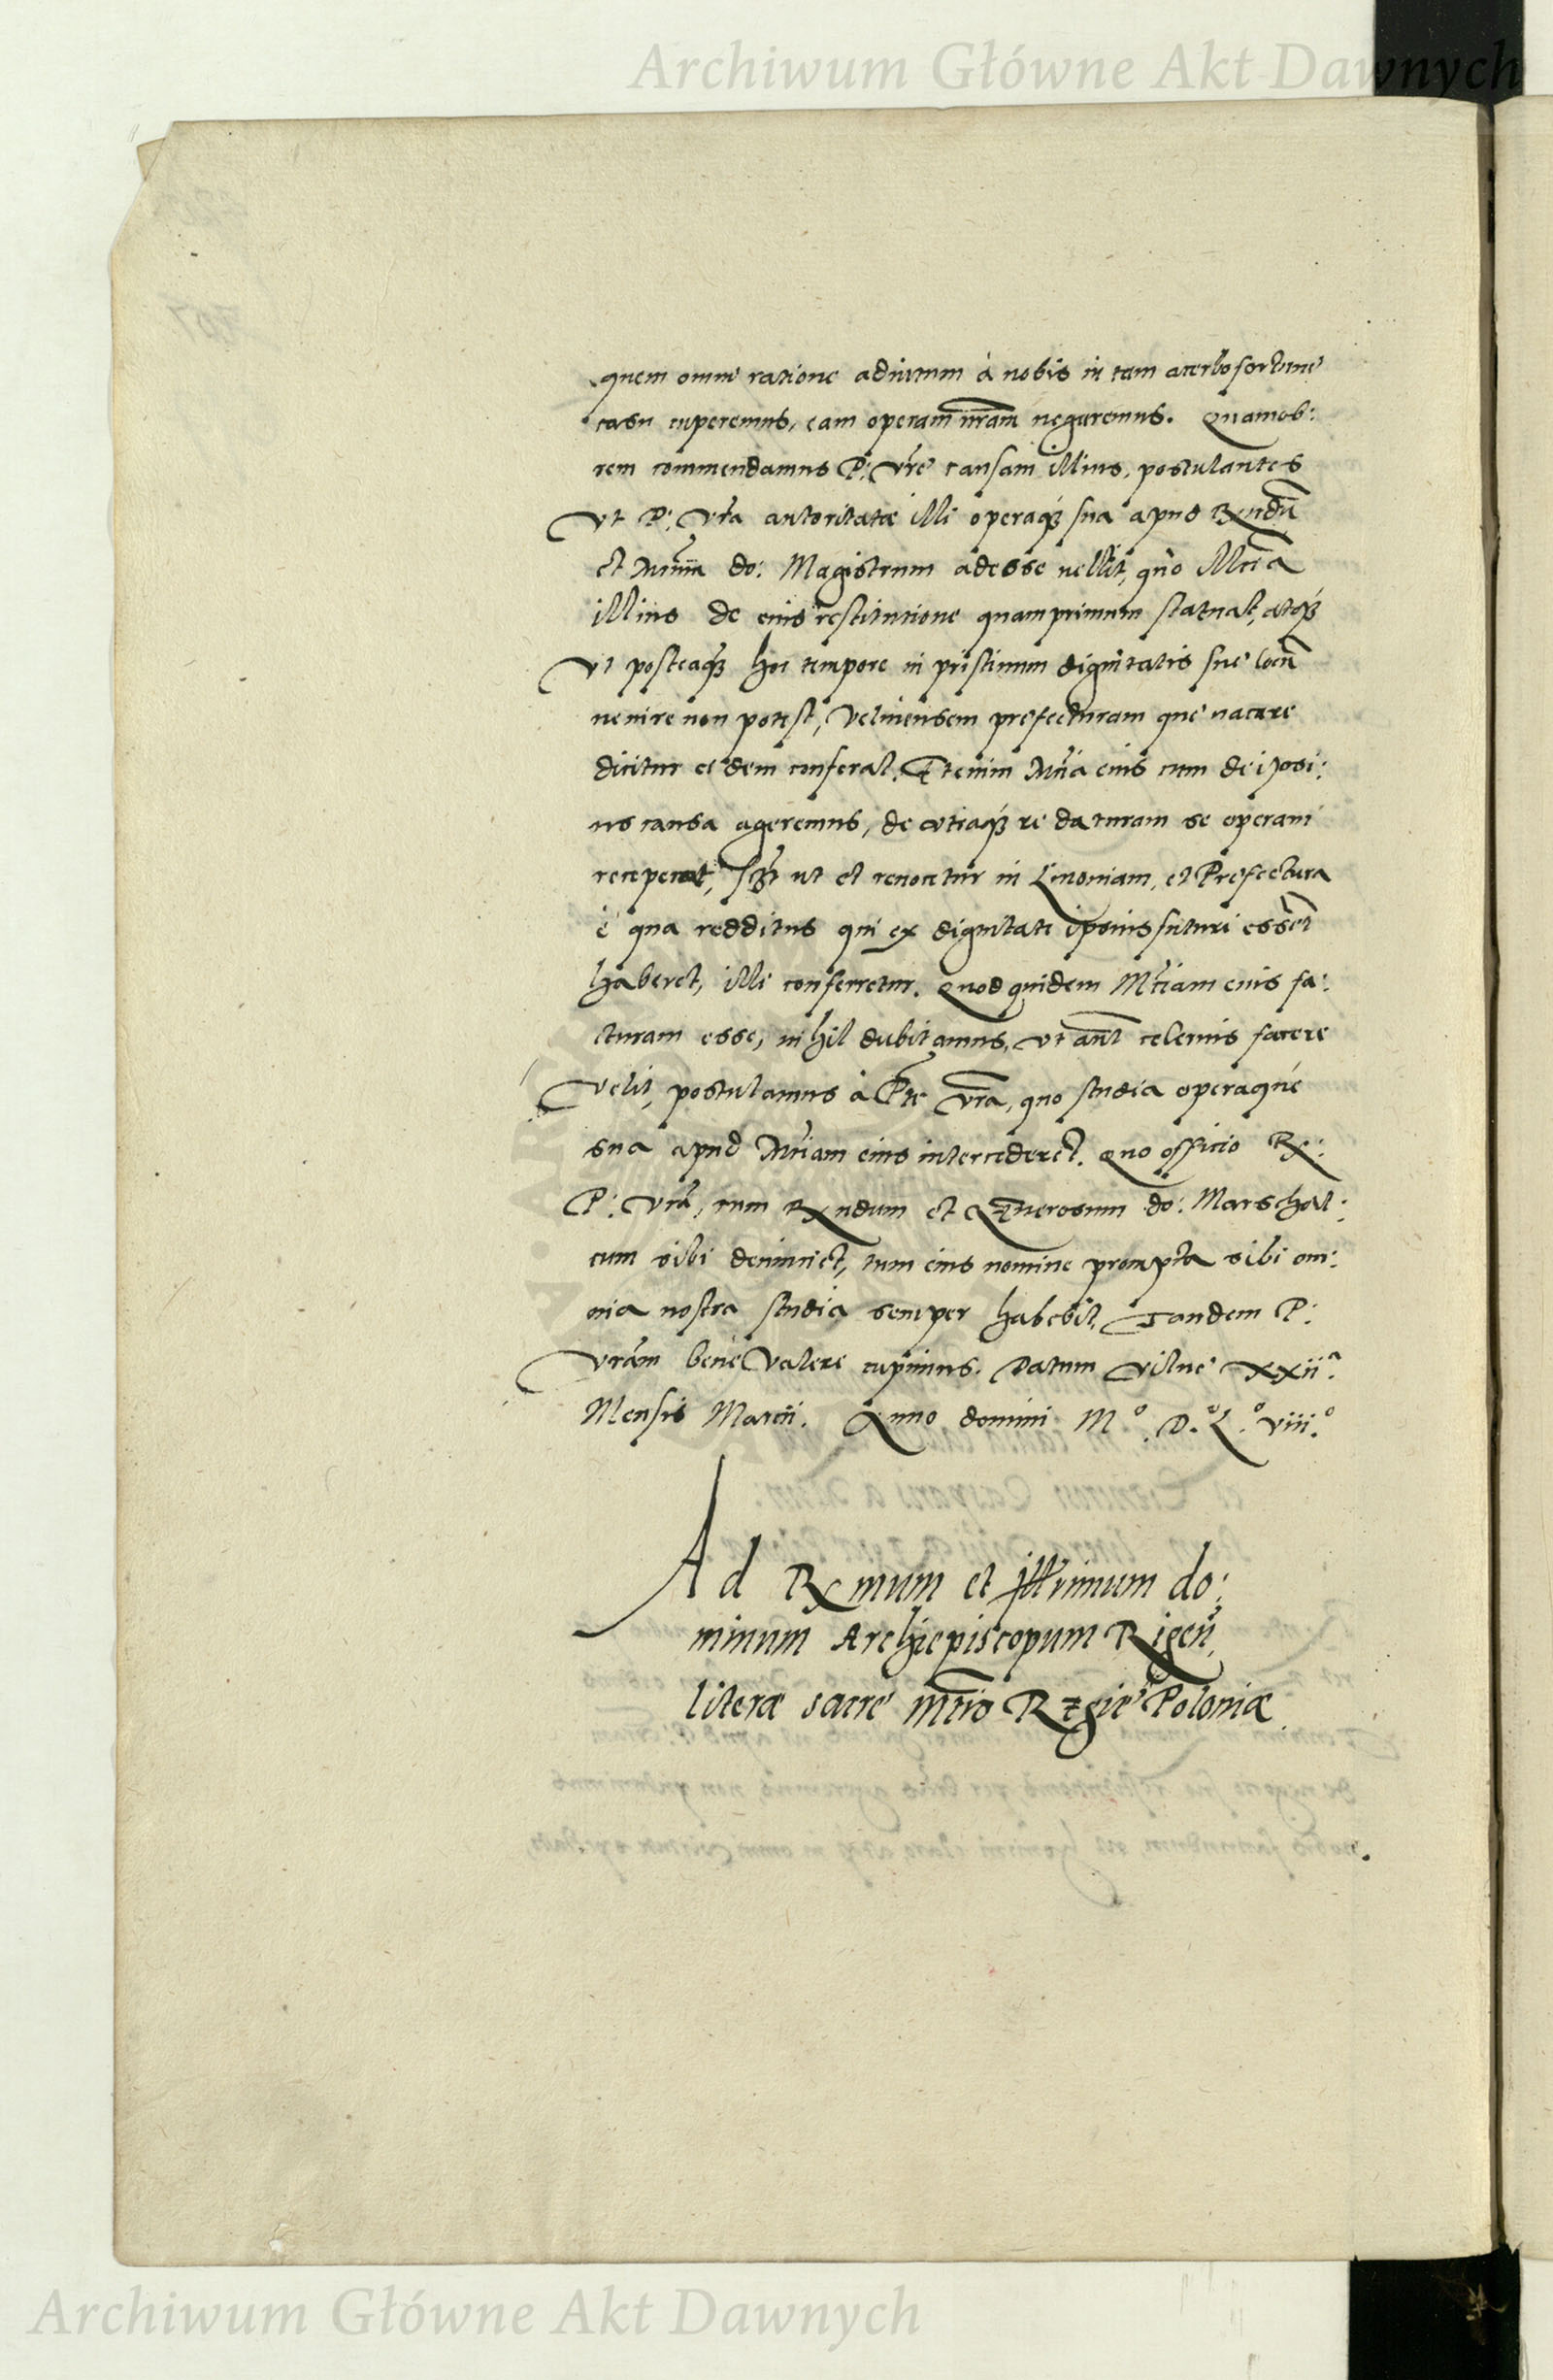 Archiwum Główne Akt Dawnych
quem omni ratione adiutum à nobis in tam acerbo fortune
casu cuperemus, eam operam nram negaremus. Quamob:
rem commendamus P: Vre causam illius, postulantes
Vt P: Vra autoritatæ illi operaq; sua apud Rndu
et do: Magistrum adesse vellit, quo Illtia
illius de eius restitutione quamprimum statuat, atq;
Vt posteaq; hoc tempore in pristinum dignitatis sue locu
venire non potest, Velinensem prefecturam que vacare
dicitur eidem conferat. Etenim Mtia eius cum de ipsi:
us causa ageremus, de vtraq; re daturam se operam
receperat, ut et revocetur in Livoniam, et Prefectura
è qua redditus qui ex dignitate ipsius futuri essent
haberet, illi conferretur. Quod quidem Mtiam eius fa:
cturam esse, nihil dubitamus, vt aut celerius facere
Velit, postulamus à Pte Vra, quo studia operaque
sua apud Mtiam eius intercederet. Quo officio Rx:
P: Vra, cum Rxndum et Generosum do: Marschal:
cum sibi deuinciet, tum eius nomine prompta sibi om:
nia nostra studia semper habebit, Tandem P:
Vram bene Valere cupimus. Datum Vilne xxii a
Mensis Marcii. Anno domini M o. D. o L. o viii. o
Ad Rxmum et Illrimum do:
minum Archiepiscopum Rigen,
literæ sacre Mtis Regie Poloniæ
Archiwum Główne Akt Dawnych